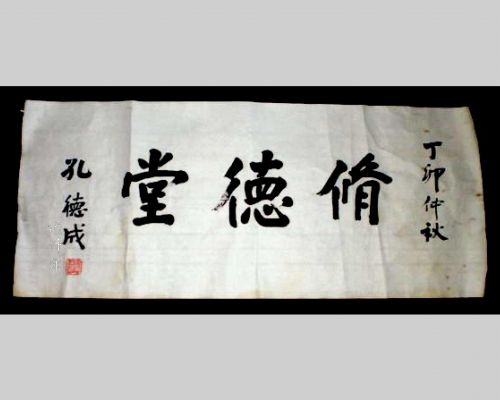 丁卯仲秋
脩德堂
孔德成